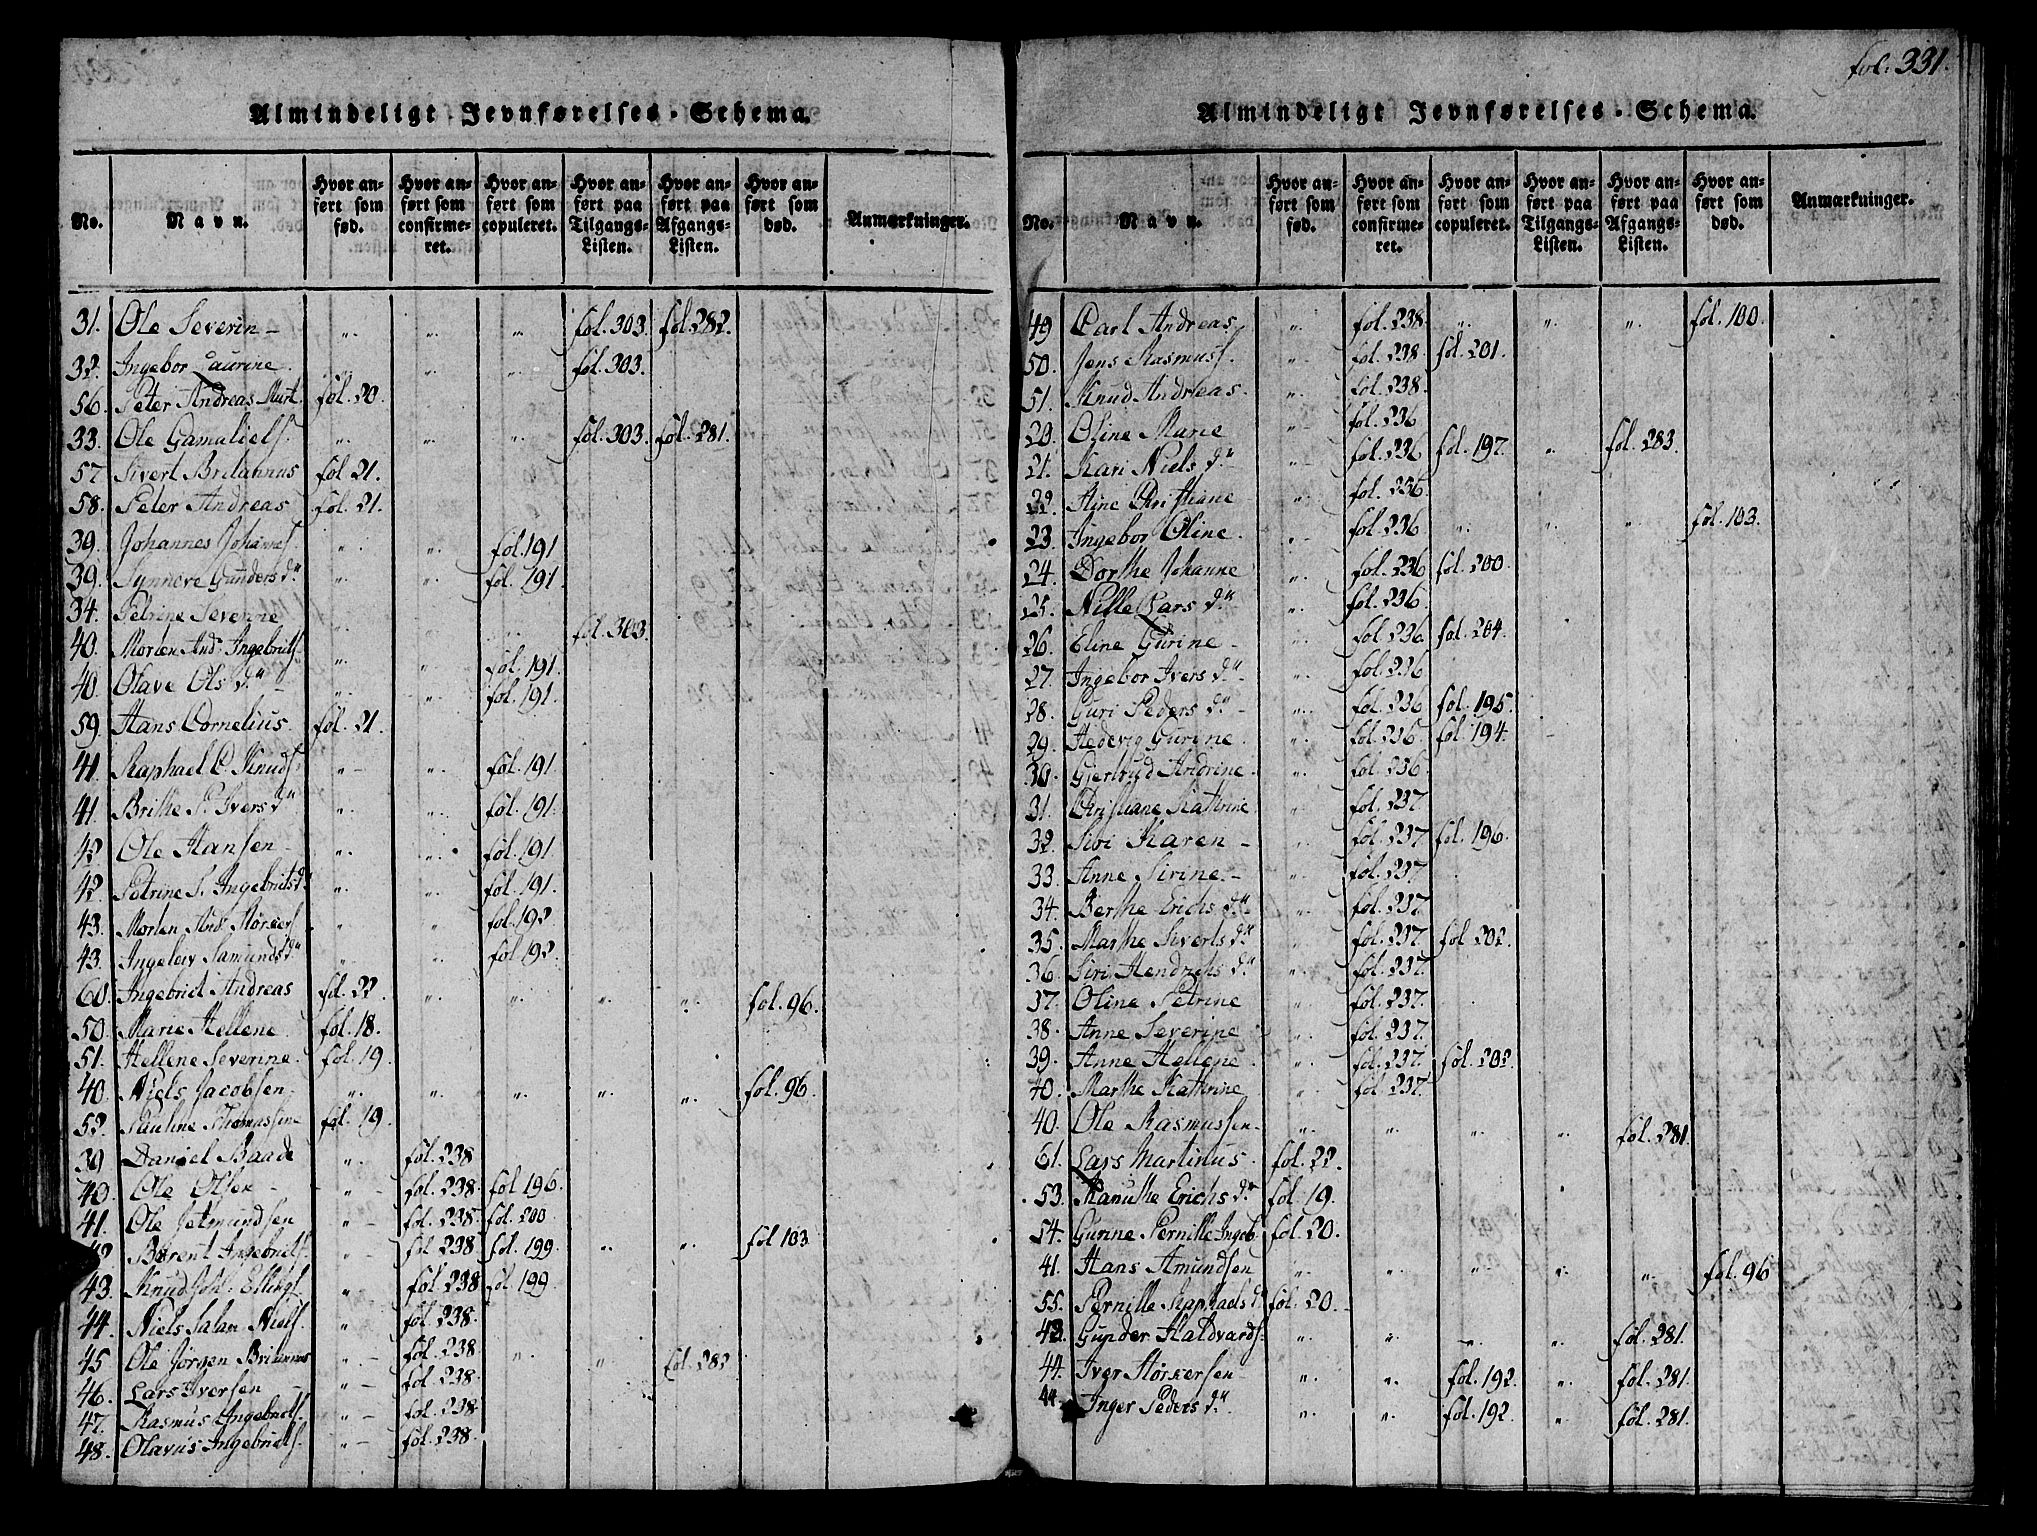 Almindeligt Jevnførelses-Schema.
No. | Navn. | Hvor anført som fød. | Hvor anført som confirmeret. | Hvor anført som copuleret. | Hvor anført paa Tilgangs-Listen. | Hvor anført paa Afgangs-Listen. | Hvor anført som død. | Anmærkninger.
31. Ole Severin - " " " fol. 303. fol. 282.
32. Ingebor Laurine - " " " fol. 303.
56. Peter Andreas Murt. fol. 20.
33. Ole Gamaliels. " " " fol. 303. fol. 281.
57. Sivert Britannus fol. 21.
58. Peter Andreas fol. 21.
39. Johannes Johannes. " " fol. 191
39. Synneve Gunders dr. " " fol. 191.
34. Petrine Severine " " " fol. 303.
40. Morten And. Ingebrits. " " fol. 191.
40. Olave Ols dr. - " " fol. 191.
59. Hans Cornelius. fol. 21.
41. Raphael C. Knuds. " " fol. 191
41. Brithe P. Ivers dr. " " fol. 191.
42. Ole Hansen - " " fol. 191
42. Petrine S. Ingebrits dr. " " fol. 191.
43. Morten And. Størkers. " " fol. 192
43. Ingeleiv Samunds dr. " " fol. 192.
60. Ingebrict Andreas fol. 22. " " " " fol. 96.
50. Marie Hellene fol. 18.
51. Hellene Severine. fol. 19.
40. Niels Jacobsen - " " " " " fol. 96.
52. Pauline Thomassine fol. 19.
39 Daniel Baade " fol. 238
40. Ole Olsen - " fol. 238. fol 196.
41. Ole Jetmundsen " fol. 238. fol. 200
42. Berent Ingebriets. " fol. 238. fol. 199. " " fol 103
43. Knud Joh. Ellings. " fol. 238 fol 199.
44. Niels Salan Niels. " fol. 238.
45 Ole Jørgen Britannus " fol. 238 " " fol. 282
46. Lars Iversen - " fol. 238.
47. Rasmus Ingebriets. " fol. 238.
48. Olavus Ingebriets. " fol. 238.
fol. 331.
Almindeligt Jevnførelses-Schema.
No. | Navn. | Hvor anført som fød. | Hvor anført som confirmeret. | Hvor anført som copuleret. | Hvor anført paa Tilgangs-Listen. | Hvor anført paa Afgangs-Listen. | Hvor anført som død. | Anmærkninger.
49 Carl Andreas " fol. 238. " " " fol. 100.
50. Jens Rasmuss. " fol. 238. fol. 201.
51. Knud Andreas. " fol. 238.
20. Oline Marie " fol. 236
21. Kari Niels dr. " fol. 236 fol. 197. " fol. 283.
22. Stine Christiane " fol. 236.
23. Ingebor Oline. " fol. 236 " " " fol. 103.
24. Dorthe Johanne " fol. 236 fol. 200.
25. Nille Lars dr. " fol. 236.
26. Eline Gurine - " fol. 236 fol. 204.
27. Ingebor Ivers dr. " fol. 236
28. Guri Peders dr. - " fol. 236 fol. 195.
29. Hedevig Gurine. " fol. 236 fol. 194.
30. Gjertrud Andrine. " fol. 236.
31. Christiane Kathrine " fol. 237
32. Sivi Karen - " fol. 237 fol. 196.
33. Anne Sirine. - " fol. 237.
34. Berthe Erichs dr. " fol. 237.
35. Marthe Siverts dr. " fol. 237. fol 202.
36. Siri Hendrichs dr. " fol. 237.
37. Oline Petrine " fol. 237.
38. Anne Severine " fol. 237.
39. Anne Hellene " fol. 237. fol. 202.
40. Marthe Kathrine " fol. 237.
40. Ole Rasmussen. " " " " fol. 281
61. Lars Martinus. fol. 22.
53. Ranuthe Erichs dr. fol. 19.
54. Gurine Pernille Ingeb. fol. 20.
41. Hans Amundsen " " " " " fol. 96
55. Pernille Raphaels dr. fol. 20.
43. Gunder Haldvards. " " " " fol. 281.
44. Iver Størkersen " " fol. 192. " fol. 281.
44 Inger Peders dr. " " fol. 192. " fol. 281.